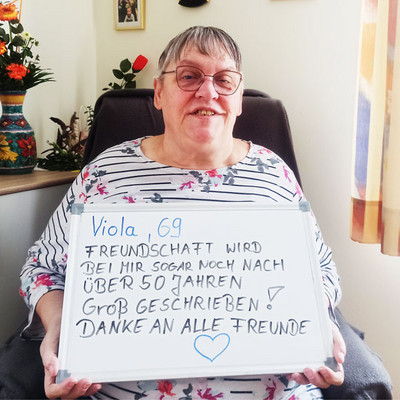 Viola, 69
FREUNDSCHAFT WIRD
BEI MIR SOGAR NOCH NACH
ÜBER 50 JAHREN
GROß GESCHRIEBEN!
DANKE AN ALLE FREUNDE